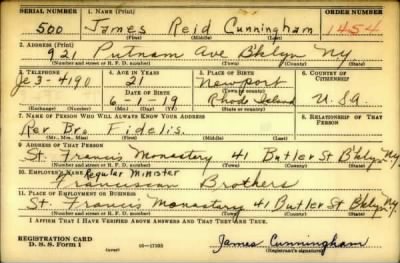 SERIAL NUMBER 1. NAME (Print) ORDER NUMBER
500 James Reid Cunningham 1454
(First) (Middle) (Last)
2. ADDRESS (Print)
921 Putnam Ave B'klyn Ny
(Number and street or R. F. D. number) (Town) (County) (State)
3. TELEPHONE 4. AGE IN YEARS 5. PLACE OF BIRTH 6. COUNTRY OF CITIZENSHIP
21 Newport
Je 3-4190 DATE OF BIRTH (Town or county)
6-1-19 Rhode Island U.S.A.
(Exchange) (Number) (Mo.) (Day) (Yr.) (State or country)
7. NAME OF PERSON WHO WILL ALWAYS KNOW YOUR ADDRESS 8. RELATIONSHIP OF THAT PERSON
Rev Bro Fidelis.
(Mr., Mrs., Miss) (First) (Middle) (Last)
9. ADDRESS OF THAT PERSON
St. Francis Monastery 41 Butler St B'klyn Ny.
(Number and street or R. F. D. number) (Town) (County) (State)
10. EMPLOYER'S NAME Regular Minister
Franciscan Brothers
11. PLACE OF EMPLOYMENT OR BUSINESS
St. Francis Monastery 41 Butler St B'klyn Ny.
(Number and street or R. F. D. number) (Town) (County) (State)
I AFFIRM THAT I HAVE VERIFIED ABOVE ANSWERS AND THAT THEY ARE TRUE.
REGISTRATION CARD
D. S. S. FORM 1 16-17105 James Cunningham
(Registrant's signature)